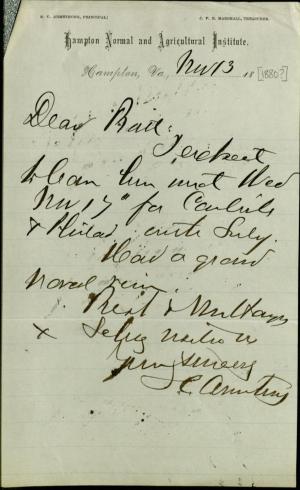 S. C. ARMSTRONG, PRINCIPAL. J. F. B. MARSHALL, TREASURER.
Hampton Normal and Agricultural Institute.
Hampton, Va, Nov 13 18 [1880?]
Dear Pratt:
I expect
to leave here next Wed
Nov 17" for Carlisle
& Philad. with
Had a grand
naval
& Mrs Hayes
&
Yours sincerely
S C Armstrong